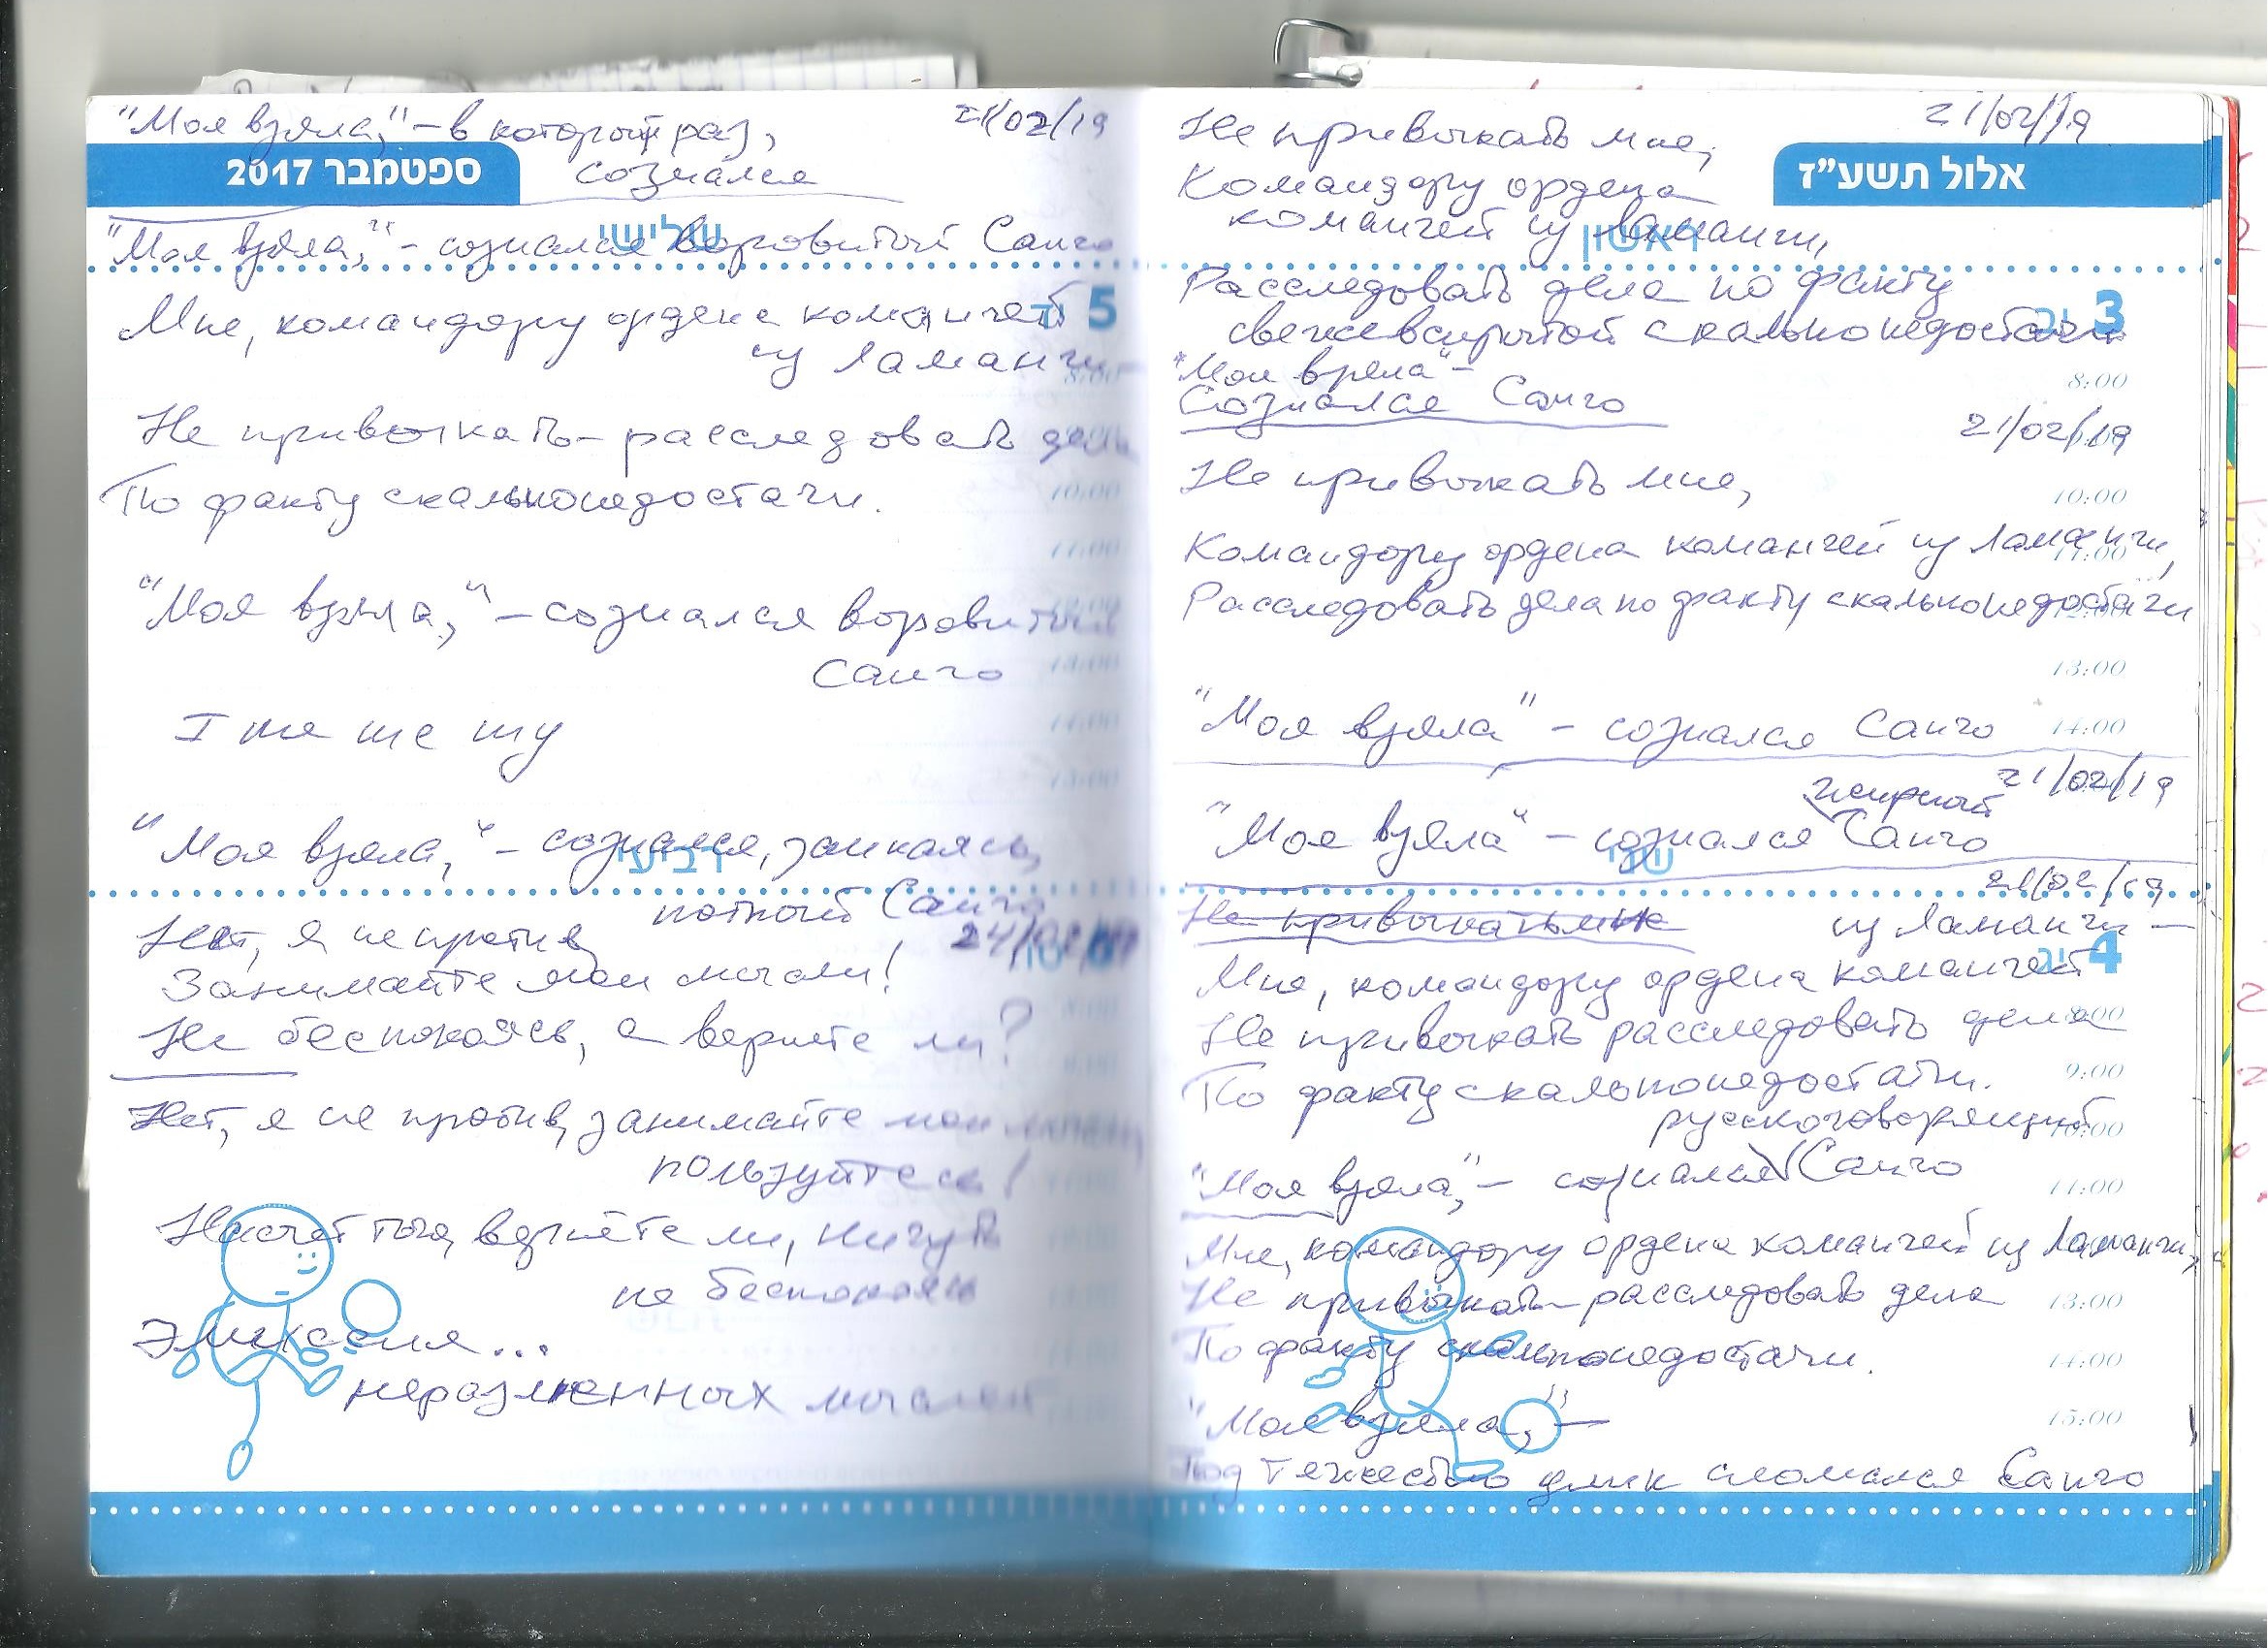 "Моя взяла," – в который раз,
21/02/19
ספטמבר 2017
сознался
"Моя взяла," – сознался вороватый Санчо
שלישי
5
Мне, командору ордена команчей
из Ламанчи –
8:00
Не привыкать – расследовать дела
По факту скальпонедостачи.
10:00
11:00
"Моя взяла," – сознался вороватый
Санчо
I та же ту
"Моя взяла," – сознался, заикаясь,
רביעי
потный Санчо
Нет, я не против
24/02/19
Занимайте мои мысли!
Не беспокоясь, а вернёте ли?
Нет, я не против, занимайте мои мысли,
пользуйтесь!
Насчёт того, вернёте ли, ничуть
не беспокоясь
Эмиссия...
неразменных мыслей
Не привыкать мне,
21/02/19
Командору ордена
אלול תשע"ז
команчей из Ламанчи,
ראשון
Расследовать дела по факту
3
свежевскрытой скальпонедостачи
"Моя взяла" –
8:00
Сознался Санчо
21/02/19
Не привыкать мне,
10:00
Командору ордена команчей из Ламанчи,
11:00
Расследовать дела по факту скальпонедостачи
12:00
13:00
"Моя взяла" – сознался Санчо
14:00
21/02/19
жирный
"Моя взяла" – сознался Санчо
שני
21/02/19
Не привыкать мне
из Ламанчи –
4
Мне, командору ордена команчей
Не привыкать расследовать дела
8:00
По факту скальпонедостачи.
9:00
русскоговорящий
10:00
"Моя взяла," – сознался Санчо
11:00
Мне, командору ордена команчей из Ламанчи,
Не привыкать – расследовать дела
13:00
По факту скальпонедостачи.
14:00
"Моя взяла," –
15:00
Под тяжестью улик сломался Санчо